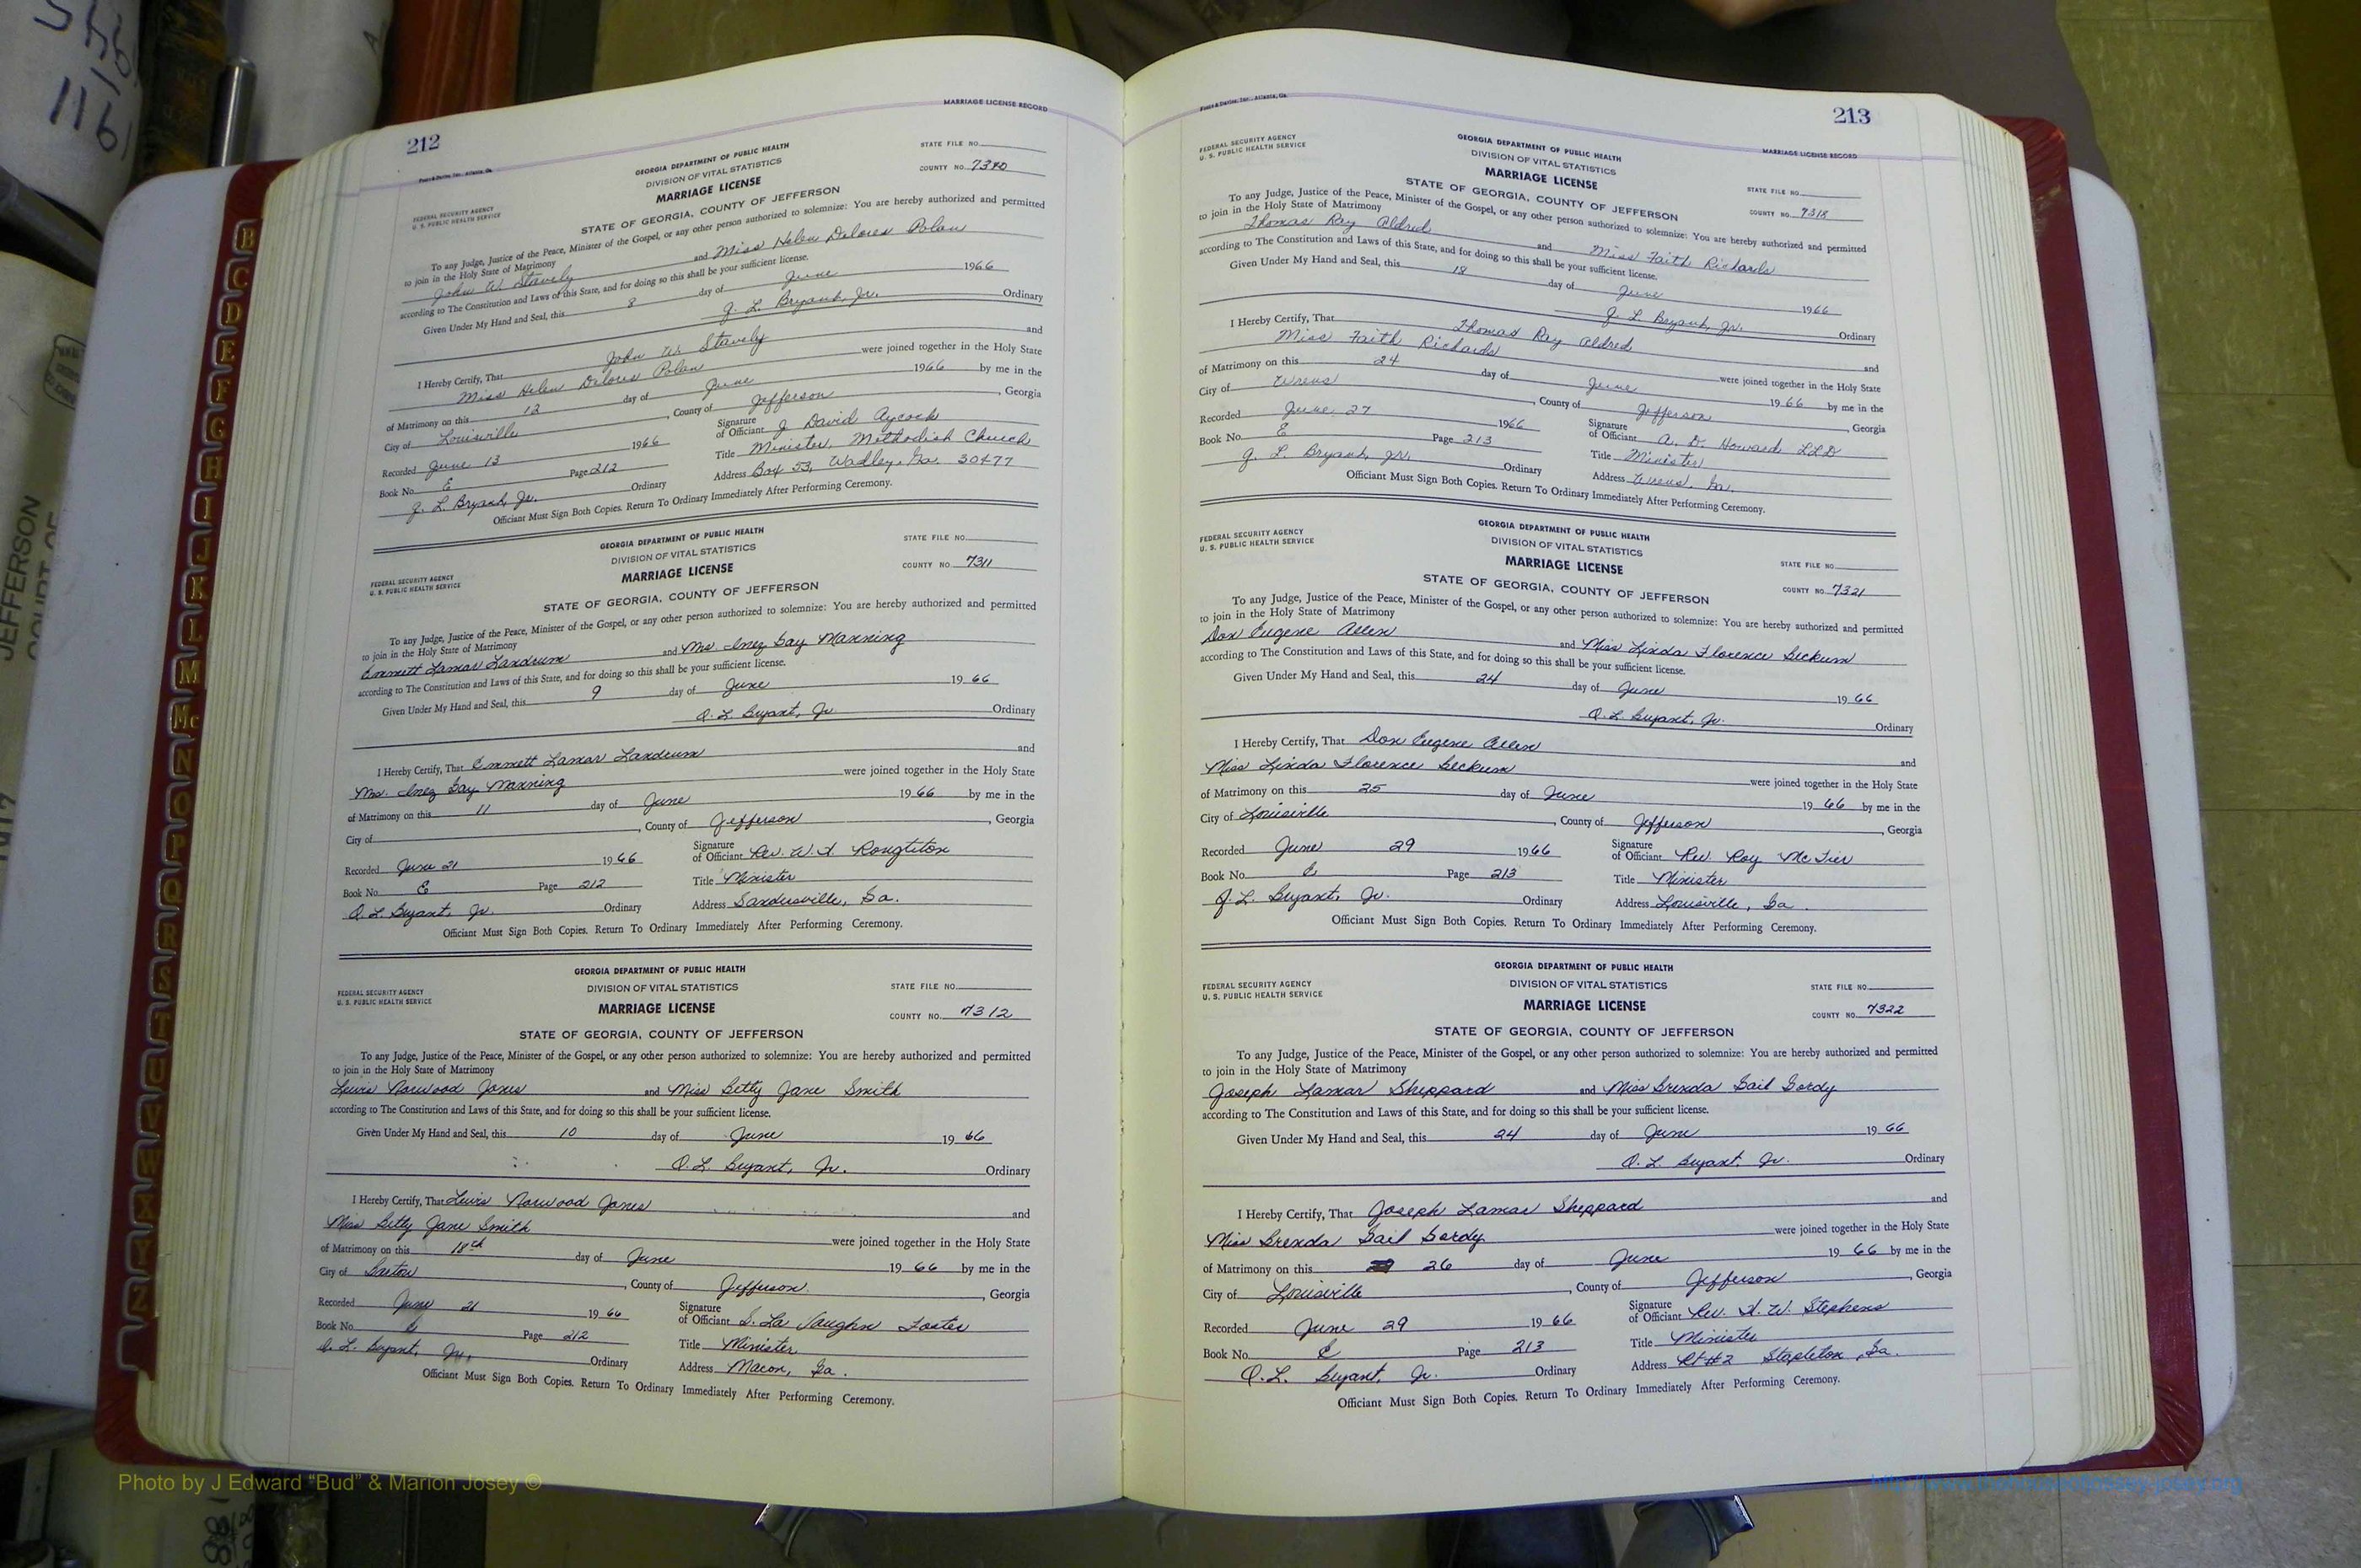 212
MARRIAGE LICENSE RECORD
Foote & Davies, Inc., Atlanta, Ga.
FEDERAL SECURITY AGENCY
U. S. PUBLIC HEALTH SERVICE
GEORGIA DEPARTMENT OF PUBLIC HEALTH
DIVISION OF VITAL STATISTICS
MARRIAGE LICENSE
STATE OF GEORGIA, COUNTY OF JEFFERSON
STATE FILE NO.
COUNTY NO. 7310
To any Judge, Justice of the Peace, Minister of the Gospel, or any other person authorized to solemnize: You are hereby authorized and permitted
to join in the Holy State of Matrimony
John W. Stavely and Miss Helen Delores Polan
according to The Constitution and Laws of this State, and for doing so this shall be your sufficient license.
Given Under My Hand and Seal, this 8 day of June 1966
Q. L. Bryant, Jr. Ordinary
I Hereby Certify, That John W. Stavely and
Miss Helen Delores Polan were joined together in the Holy State
of Matrimony on this 12 day of June 1966 by me in the
City of Louisville, County of Jefferson, Georgia
Recorded June 13 1966
Signature of Officiant J. David Aycock
Book No. E Page 212
Title Minister, Methodist Church
Q. L. Bryant, Jr. Ordinary
Address Box 53, Wadley, Ga. 30477
Officiant Must Sign Both Copies. Return To Ordinary Immediately After Performing Ceremony.
FEDERAL SECURITY AGENCY
U. S. PUBLIC HEALTH SERVICE
GEORGIA DEPARTMENT OF PUBLIC HEALTH
DIVISION OF VITAL STATISTICS
MARRIAGE LICENSE
STATE OF GEORGIA, COUNTY OF JEFFERSON
STATE FILE NO.
COUNTY NO. 7311
To any Judge, Justice of the Peace, Minister of the Gospel, or any other person authorized to solemnize: You are hereby authorized and permitted
to join in the Holy State of Matrimony
Emmett Lamar Landrum and Mrs. Inez Gay Manning
according to The Constitution and Laws of this State, and for doing so this shall be your sufficient license.
Given Under My Hand and Seal, this 9 day of June 1966
Q. L. Bryant, Jr. Ordinary
I Hereby Certify, That Emmett Lamar Landrum and
Mrs. Inez Gay Manning were joined together in the Holy State
of Matrimony on this 11 day of June 1966 by me in the
City of , County of Jefferson, Georgia
Recorded June 21 1966
Signature of Officiant Rev. W. I. Roughton
Book No. E Page 212
Title Minister
Q. L. Bryant, Jr. Ordinary
Address Sandersville, Ga.
Officiant Must Sign Both Copies. Return To Ordinary Immediately After Performing Ceremony.
FEDERAL SECURITY AGENCY
U. S. PUBLIC HEALTH SERVICE
GEORGIA DEPARTMENT OF PUBLIC HEALTH
DIVISION OF VITAL STATISTICS
MARRIAGE LICENSE
STATE OF GEORGIA, COUNTY OF JEFFERSON
STATE FILE NO.
COUNTY NO. 7312
To any Judge, Justice of the Peace, Minister of the Gospel, or any other person authorized to solemnize: You are hereby authorized and permitted
to join in the Holy State of Matrimony
Lewis Norwood Jones and Miss Betty Jane Smith
according to The Constitution and Laws of this State, and for doing so this shall be your sufficient license.
Given Under My Hand and Seal, this 10 day of June 1966
Q. L. Bryant, Jr. Ordinary
I Hereby Certify, That Lewis Norwood Jones and
Miss Betty Jane Smith were joined together in the Holy State
of Matrimony on this 18th day of June 1966 by me in the
City of Bartow, County of Jefferson, Georgia
Recorded June 21 1966
Signature of Officiant S. La Vaughn Foster
Book No. E Page 212
Title Minister
Q. L. Bryant, Jr. Ordinary
Address Macon, Ga.
Officiant Must Sign Both Copies. Return To Ordinary Immediately After Performing Ceremony.
213
Foote & Davies, Inc., Atlanta, Ga.
MARRIAGE LICENSE RECORD
FEDERAL SECURITY AGENCY
U. S. PUBLIC HEALTH SERVICE
GEORGIA DEPARTMENT OF PUBLIC HEALTH
DIVISION OF VITAL STATISTICS
MARRIAGE LICENSE
STATE OF GEORGIA, COUNTY OF JEFFERSON
STATE FILE NO.
COUNTY NO. 7318
To any Judge, Justice of the Peace, Minister of the Gospel, or any other person authorized to solemnize: You are hereby authorized and permitted
to join in the Holy State of Matrimony
Thomas Ray Aldred and Miss Faith Richards
according to The Constitution and Laws of this State, and for doing so this shall be your sufficient license.
Given Under My Hand and Seal, this 18 day of June 1966
Q. L. Bryant, Jr. Ordinary
I Hereby Certify, That Thomas Ray Aldred and
Miss Faith Richards were joined together in the Holy State
of Matrimony on this 24 day of June 1966 by me in the
City of Wrens, County of Jefferson, Georgia
Recorded June 27 1966
Signature of Officiant A. D. Howard LLD
Book No. E Page 213
Title Minister
Q. L. Bryant, Jr. Ordinary
Address Wrens, Ga.
Officiant Must Sign Both Copies. Return To Ordinary Immediately After Performing Ceremony.
FEDERAL SECURITY AGENCY
U. S. PUBLIC HEALTH SERVICE
GEORGIA DEPARTMENT OF PUBLIC HEALTH
DIVISION OF VITAL STATISTICS
MARRIAGE LICENSE
STATE OF GEORGIA, COUNTY OF JEFFERSON
STATE FILE NO.
COUNTY NO. 7321
To any Judge, Justice of the Peace, Minister of the Gospel, or any other person authorized to solemnize: You are hereby authorized and permitted
to join in the Holy State of Matrimony
Don Eugene Allen and Miss Linda Florence Beckum
according to The Constitution and Laws of this State, and for doing so this shall be your sufficient license.
Given Under My Hand and Seal, this 24 day of June 1966
Q. L. Bryant, Jr. Ordinary
I Hereby Certify, That Don Eugene Allen and
Miss Linda Florence Beckum were joined together in the Holy State
of Matrimony on this 25 day of June 1966 by me in the
City of Louisville, County of Jefferson, Georgia
Recorded June 29 1966
Signature of Officiant Rev. Roy McTier
Book No. E Page 213
Title Minister
Q. L. Bryant, Jr. Ordinary
Address Louisville, Ga.
Officiant Must Sign Both Copies. Return To Ordinary Immediately After Performing Ceremony.
FEDERAL SECURITY AGENCY
U. S. PUBLIC HEALTH SERVICE
GEORGIA DEPARTMENT OF PUBLIC HEALTH
DIVISION OF VITAL STATISTICS
MARRIAGE LICENSE
STATE OF GEORGIA, COUNTY OF JEFFERSON
STATE FILE NO.
COUNTY NO. 7322
To any Judge, Justice of the Peace, Minister of the Gospel, or any other person authorized to solemnize: You are hereby authorized and permitted
to join in the Holy State of Matrimony
Joseph Lamar Sheppard and Miss Brenda Gail Gordy
according to The Constitution and Laws of this State, and for doing so this shall be your sufficient license.
Given Under My Hand and Seal, this 24 day of June 1966
Q. L. Bryant, Jr. Ordinary
I Hereby Certify, That Joseph Lamar Sheppard and
Miss Brenda Gail Gordy were joined together in the Holy State
of Matrimony on this 26 day of June 1966 by me in the
City of Louisville, County of Jefferson, Georgia
Recorded June 29 1966
Signature of Officiant Rev. H. W. Stephens
Book No. E Page 213
Title Minister
Q. L. Bryant, Jr. Ordinary
Address Rt #2 Stapleton, Ga.
Officiant Must Sign Both Copies. Return To Ordinary Immediately After Performing Ceremony.
B
C
D
E
F
G
H
I
J
K
L
M
Mc
N
O
P
Q
R
S
T
U
V
W
X
Y
Z
JEFFERSON
COURT OF
Photo by J Edward “Bud” & Marion Josey ©